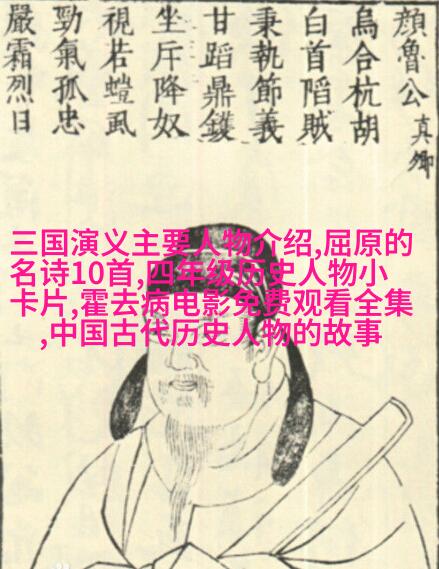 顏魯公 真卿
烏合杭胡
白首陷賊
秉執節義
甘蹈鼎鑊
坐斥降奴
視若螘虱
勁氣孤忠
嚴霜烈日
三国演义主要人物介绍,屈原的
名诗10首,四年级历史人物小
卡片,霍去病电影免费观看全集
,中国古代历史人物的故事